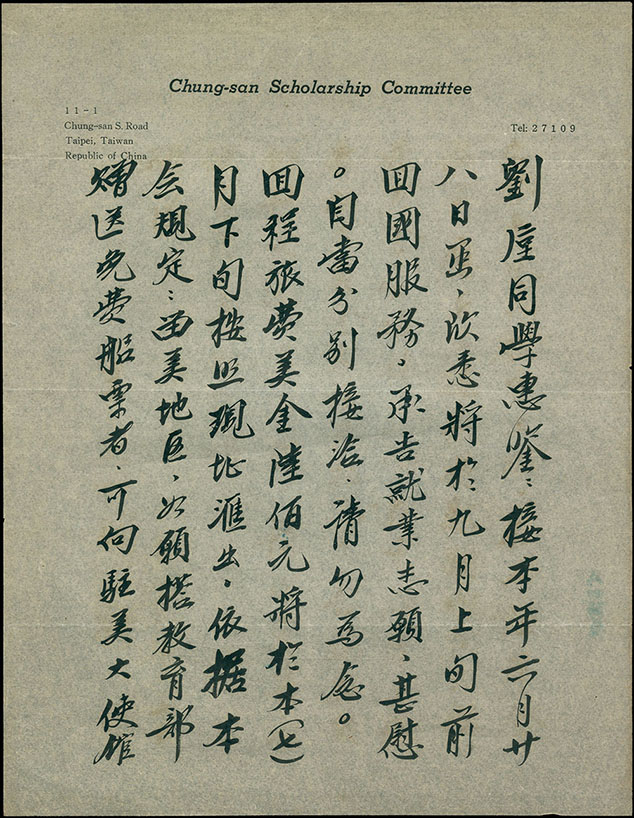 Chung-san Scholarship Committee
11-1
Chung-san S. Road
Taipei, Taiwan
Republic of China
Tel: 27109
劉塵同學惠鉴：接本年六月廿
八日函，欣悉將於九月上旬前
回國服務，承告就業志願，甚慰
。自當分别接洽，請勿爲念。
回程旅费美金陸佰元將於本(七)
月下旬按照現址滙出，依据本
会規定：留美地区，如願搭教育部
赠送免费船票者，可向駐美大使馆